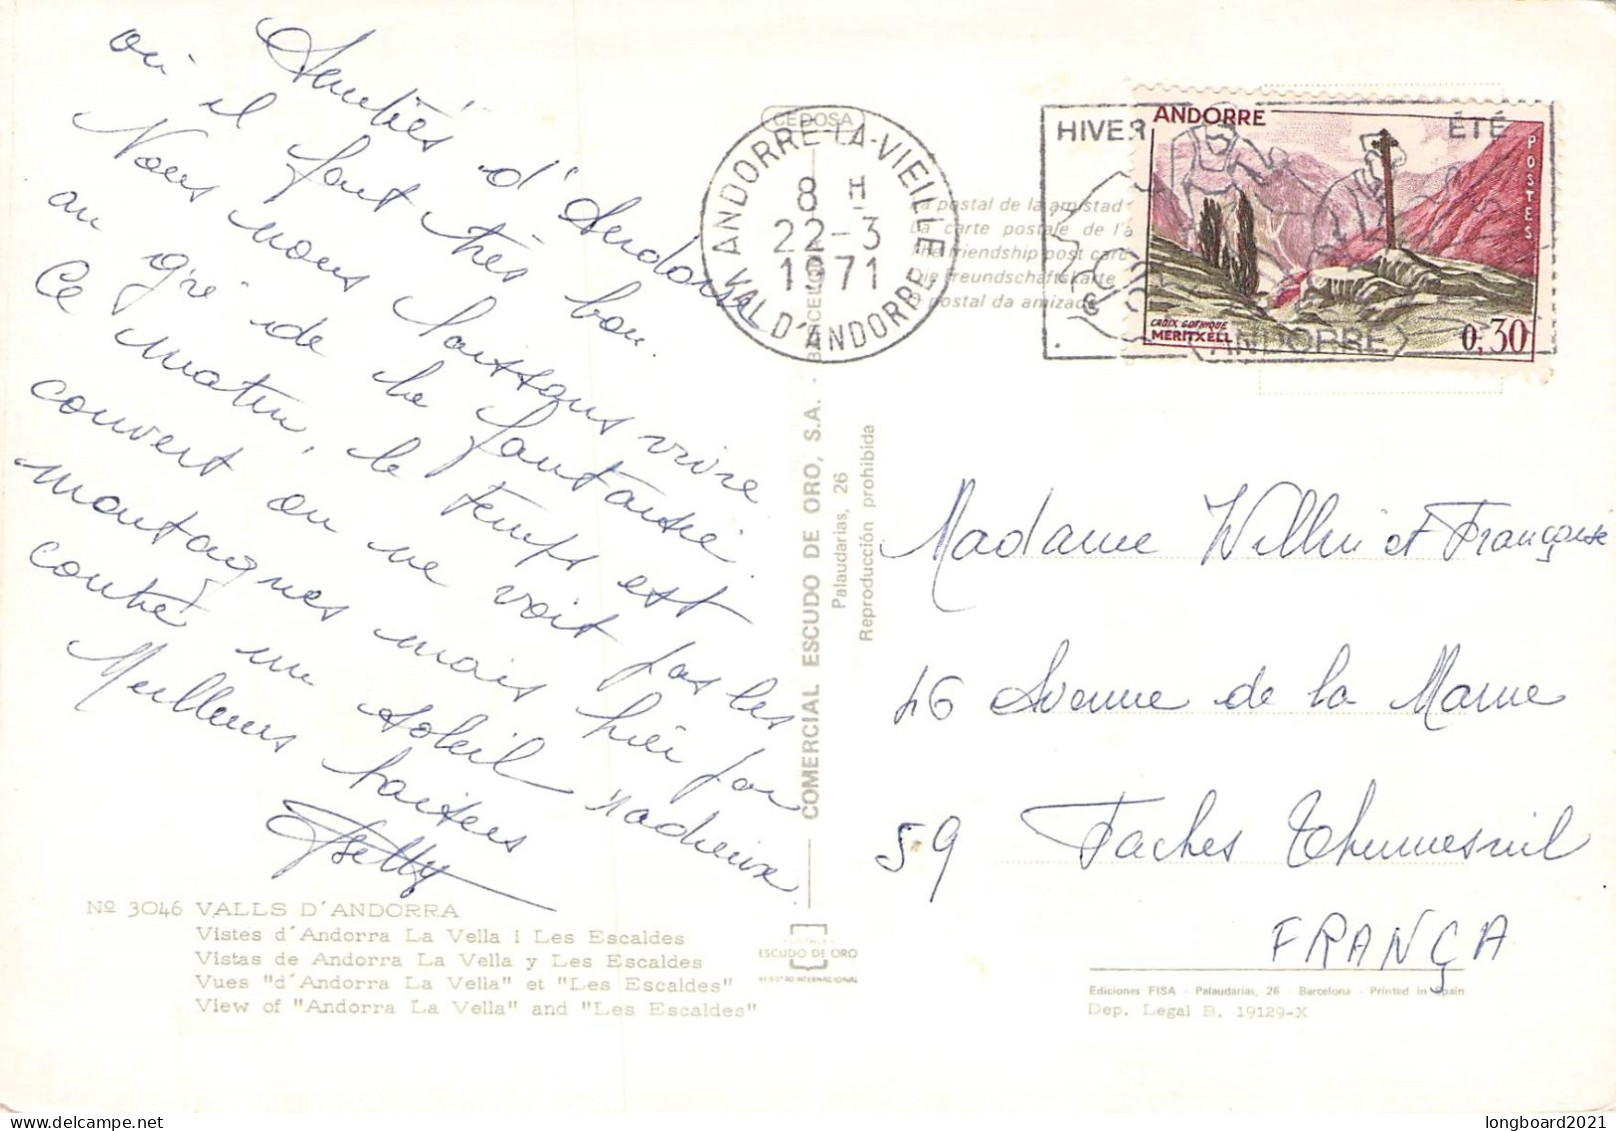 Amitiés d'Andorre
où il fait très bon.
Nous nous laissons vivre
au gré de la fantaisie.
Ce matin, le temps est
couvert on ne voit pas les
montagnes mais hier par
contre un soleil radieux
Meilleurs baisers
Betty
CEDOSA
ANDORRE-LA-VIEILLE
8 H
22-3
1971
VAL D'ANDORRE
HIVER
ÉTÉ
ANDORRE
ANDORRE
POSTES
CROIX GOTHIQUE
MERITXELL
0,30
La postal de la amistad
La carte postale de l'a
The friendship post card
Die Freundschaftskarte
postal da amizade
COMERCIAL ESCUDO DE ORO, S.A. - BARCELONA
Palaudarias, 26
Reproducción prohibida
Madame et Françoise
46 Avenue de la Marne
59 Faches Thumesnil
FRANÇA
Nº 3046 VALLS D'ANDORRA
Vistes d'Andorra La Vella i Les Escaldes
Vistas de Andorra La Vella y Les Escaldes
Vues "d'Andorra La Vella" et "Les Escaldes"
View of "Andorra La Vella" and "Les Escaldes"
ESCUDO DE ORO
REGISTRO INTERNACIONAL
Ediciones FISA - Palaudarias, 26 - Barcelona - Printed in Spain
Dep. Legal B. 19129-X
longboard2021